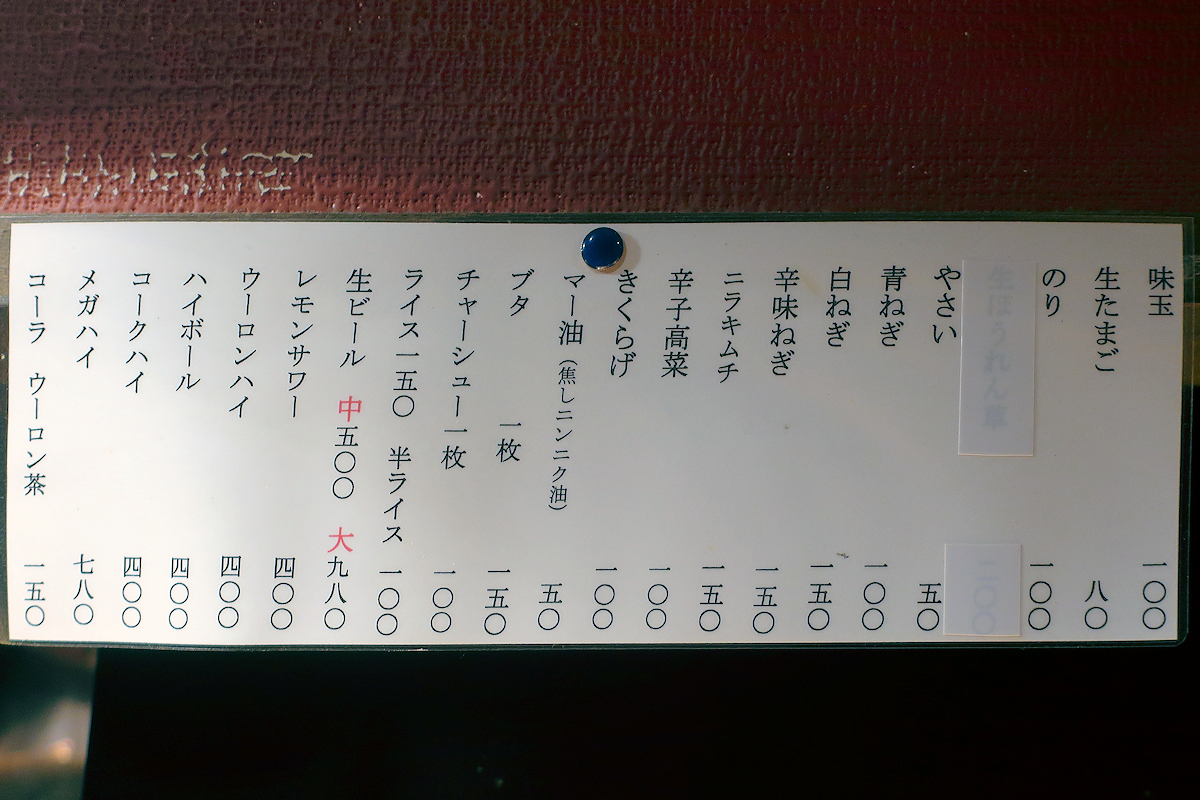 味玉 一〇〇
生たまご 八〇
のり 一〇〇
生ほうれん草 二〇〇
やさい 五〇
青ねぎ 一〇〇
白ねぎ 一五〇
辛味ねぎ 一五〇
ニラキムチ 一五〇
辛子高菜 一〇〇
きくらげ 一〇〇
マー油（焦しニンニク油） 五〇
ブタ 一枚 一五〇
チャーシュー一枚 一〇〇
ライス一五〇 半ライス 一〇〇
生ビール 中五〇〇 大九八〇
レモンサワー 四〇〇
ウーロンハイ 四〇〇
ハイボール 四〇〇
コークハイ 四〇〇
メガハイ 七八〇
コーラ ウーロン茶 一五〇